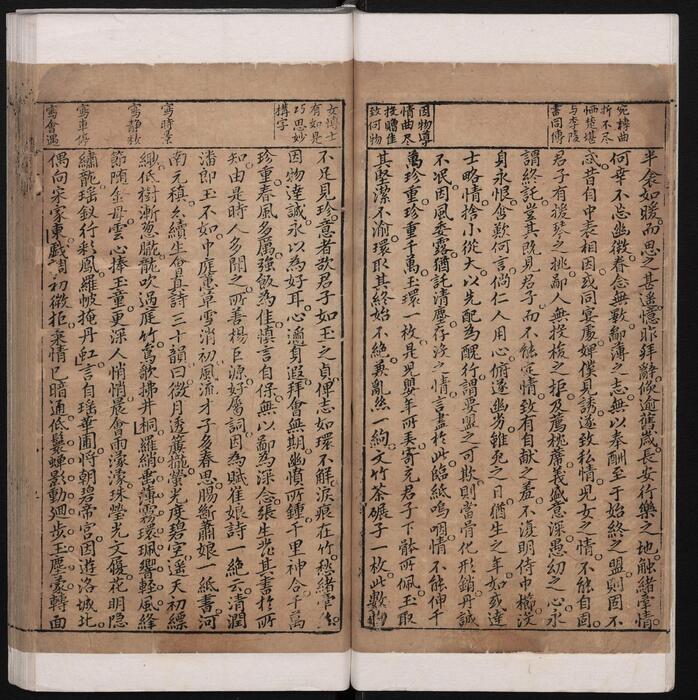 宛轉曲
折不尽
悽楚堪
与李陵
書同傳
半衾如暖而思之甚遙憶昨拜辭倏逾舊歲長安行樂之地觸緒牽情
何幸不忘幽微眷念無斁鄙薄之志無以奉酬至于始終之盟則固不
忒昔自中表相因或同宴處婢僕見誘遂致私情兒女之情不能自固
君子有援琴之挑鄙人無投梭之拒及薦枕席義盛意深愚幼之心永
謂終託豈其既見君子而不能定情致有自献之羞不復明侍巾櫛沒
身永恨含歎何言倘仁人用心俯遂幽劣雖死之日猶生之年如或達
士略情捨小從大以先配為醜行謂要盟之可欺則當骨化形銷丹誠
不泯因風委露猶託清塵存没之情言盡於此臨紙嗚咽情不能伸千
萬珍重珍重千萬玉環一枚是兒嬰年所弄寄充君子下骵所佩玉取
其堅潔不渝環取其終始不絶兼亂絲一絢文竹茶碾子一枚此數物
因物導
情曲尽
投贈佳
致何物
女博士
有如是
巧思妙
構字
不足見珍意者欲君子如玉之貞俾志如環不解淚痕在竹愁緒縈絲
因物達誠永以為好耳心邇身遐拜會無期幽憤所鍾千里神合千萬
珍重春風多厲強飯為佳慎言自保無以鄙為深念張生發其書於所
知由是時人多聞之所善楊巨源好屬詞因為賦崔娘詩一絶云清潤
潘郎玉不如中庭蕙草雪消初風流才子多春思腸斷蕭娘一紙書河
南元稹亦續生會真詩三十韻曰微月透簾櫳螢光度碧空遥天初縹
緲低樹漸葱朧龍吹過庭竹鸞歌拂井桐羅綃垂薄霧環珮響輕風絳
節隨金母雲心捧玉童更深人悄悄晨會雨濛濛珠瑩光文履花明隱
繡龍瑶釵行彩鳳羅帔掩丹虹言自瑶華圃將朝碧帝宮因遊洛城北
偶向宋家東戲調初微拒柔情已暗通低鬟蟬影動迴步玉塵蒙轉面
寫時景
寫靜
寫車
寫會遇